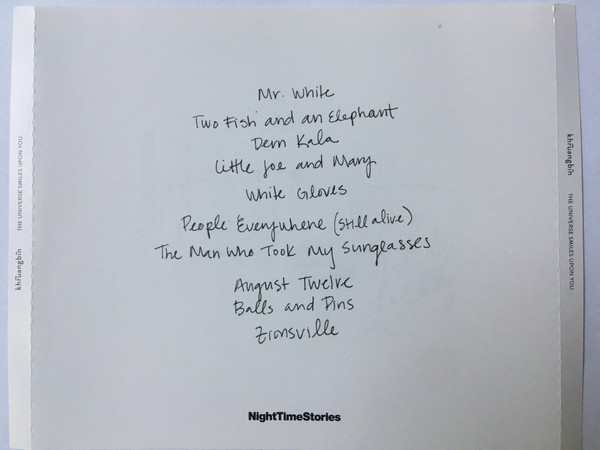 Mr. White
Two Fish and an Elephant
Dern Kala
Little Joe and Mary
White Gloves
People Everywhere (Still alive)
The Man Who Took My Sunglasses
August Twelve
Balls and Pins
Zionsville
NightTimeStories
khruangbin THE UNIVERSE SMILES UPON YOU
khruangbin THE UNIVERSE SMILES UPON YOU